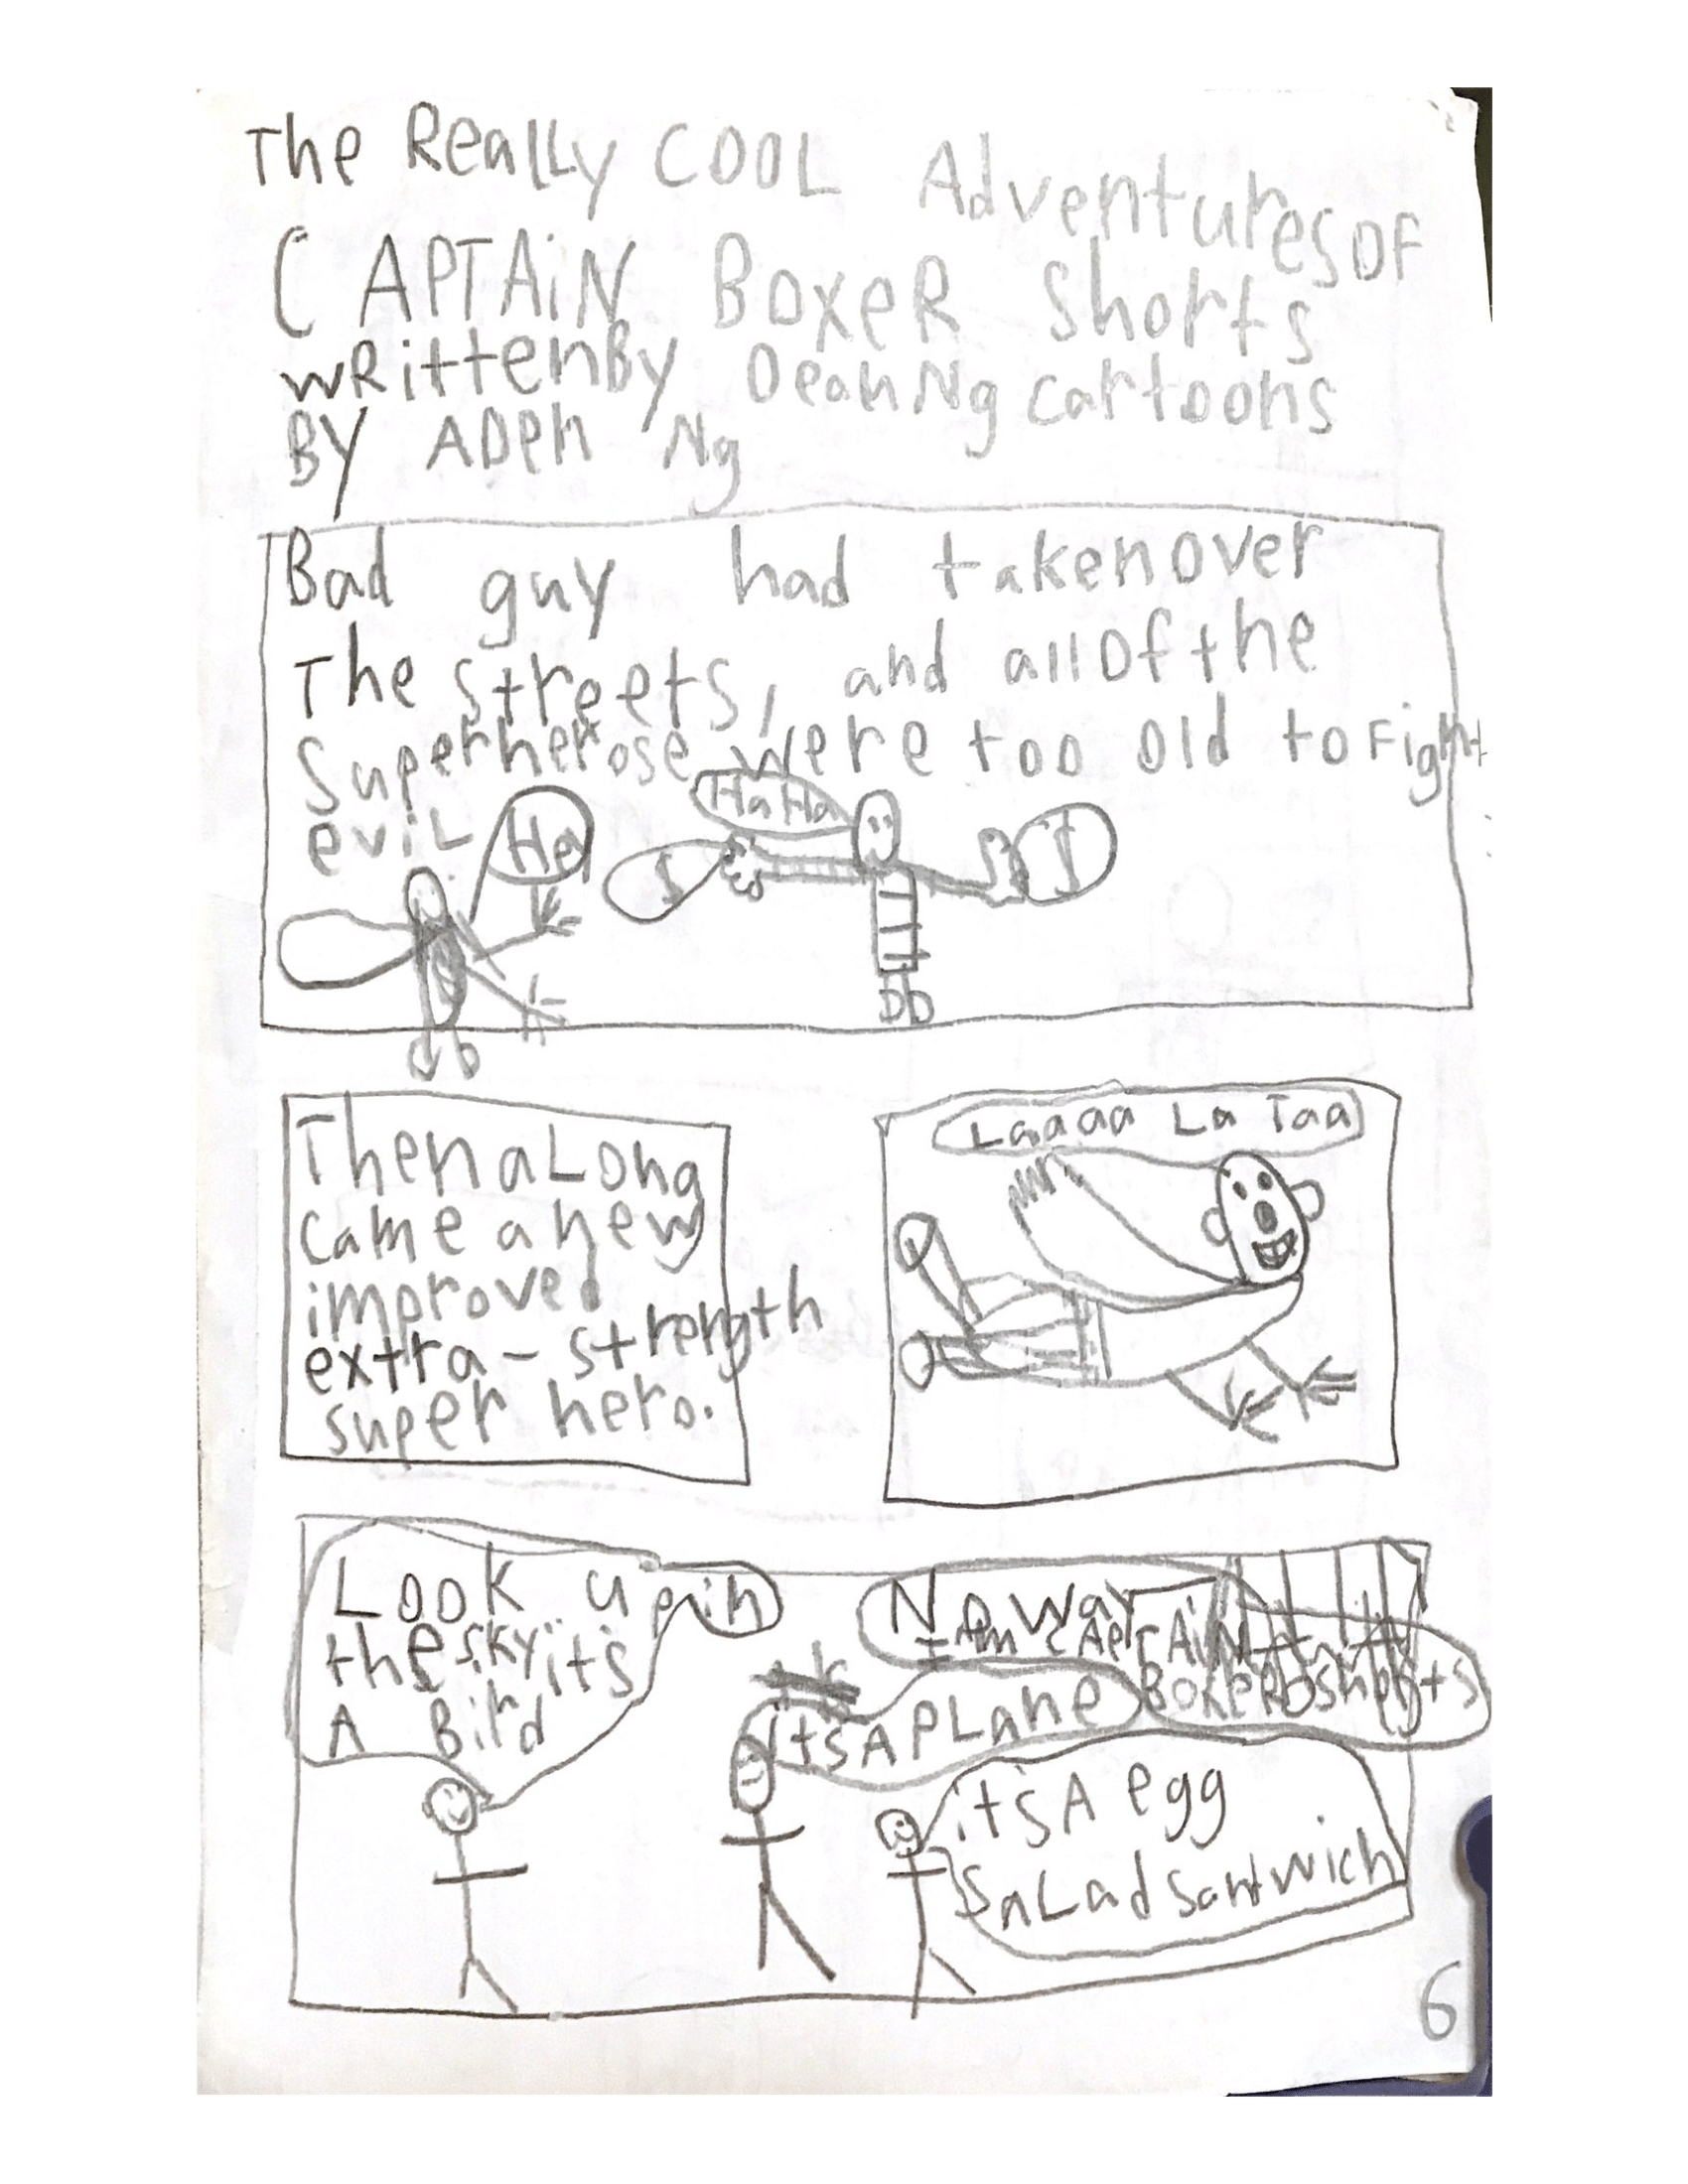 The ReaLLy COOL Adventures OF
CAPTAiN BoxeR Shorts
wRitten By Dean Ng cartoons
BY ADeN Ng
Bad guy had taken over
The streets, and all of the
Superherose were too old to Fight
eviL
Ha
Ha Ha
$
$
Then aLong
came a new
improved
extra-strength
super hero.
Laaaa La Taa
Look up in
the sky it's
A Bird
No way
I Am CAPTAiN
BoxeR Shorts
it's A PLane
it's A egg
SaLad Santwich
6